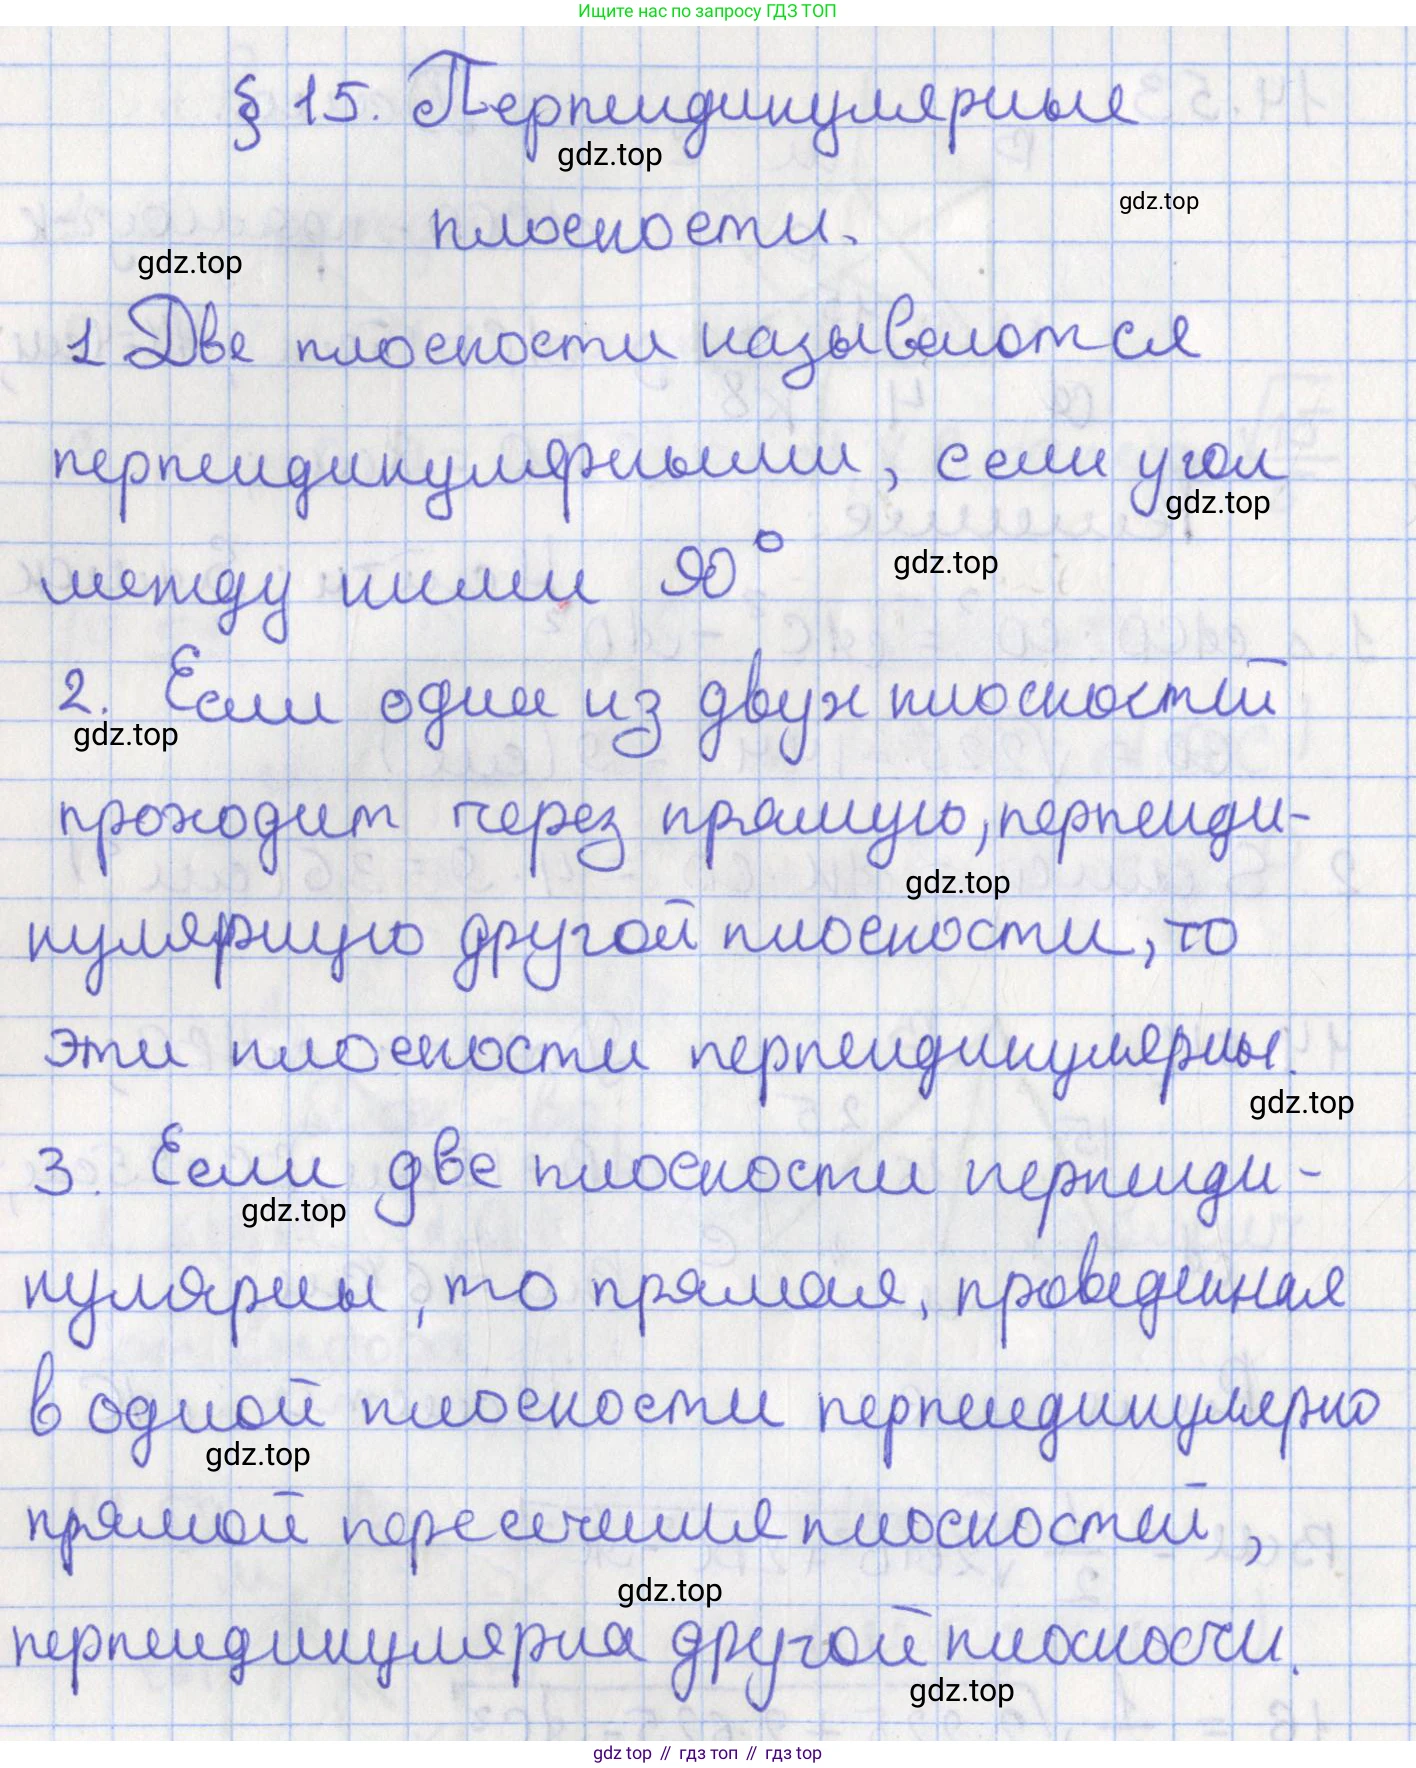 Ищите нас по запросу ГДЗ ТОП
§ 15. Перпендикулярные
gdz.top
gdz.top
плоскости.
gdz.top
1 Две плоскости называются
перпендикулярными, если угол
gdz.top
между ними 90°
gdz.top
2. Если одна из двух плоскостей
gdz.top
проходит через прямую, перпенди-
gdz.top
кулярную другой плоскости, то
эти плоскости перпендикулярны.
gdz.top
3. Если две плоскости перпенди-
gdz.top
кулярны, то прямая, проведенная
в одной плоскости перпендикулярно
gdz.top
прямой пересечения плоскостей,
gdz.top
перпендикулярна другой плоскости.
gdz.top
gdz top // гдз топ // gdz top